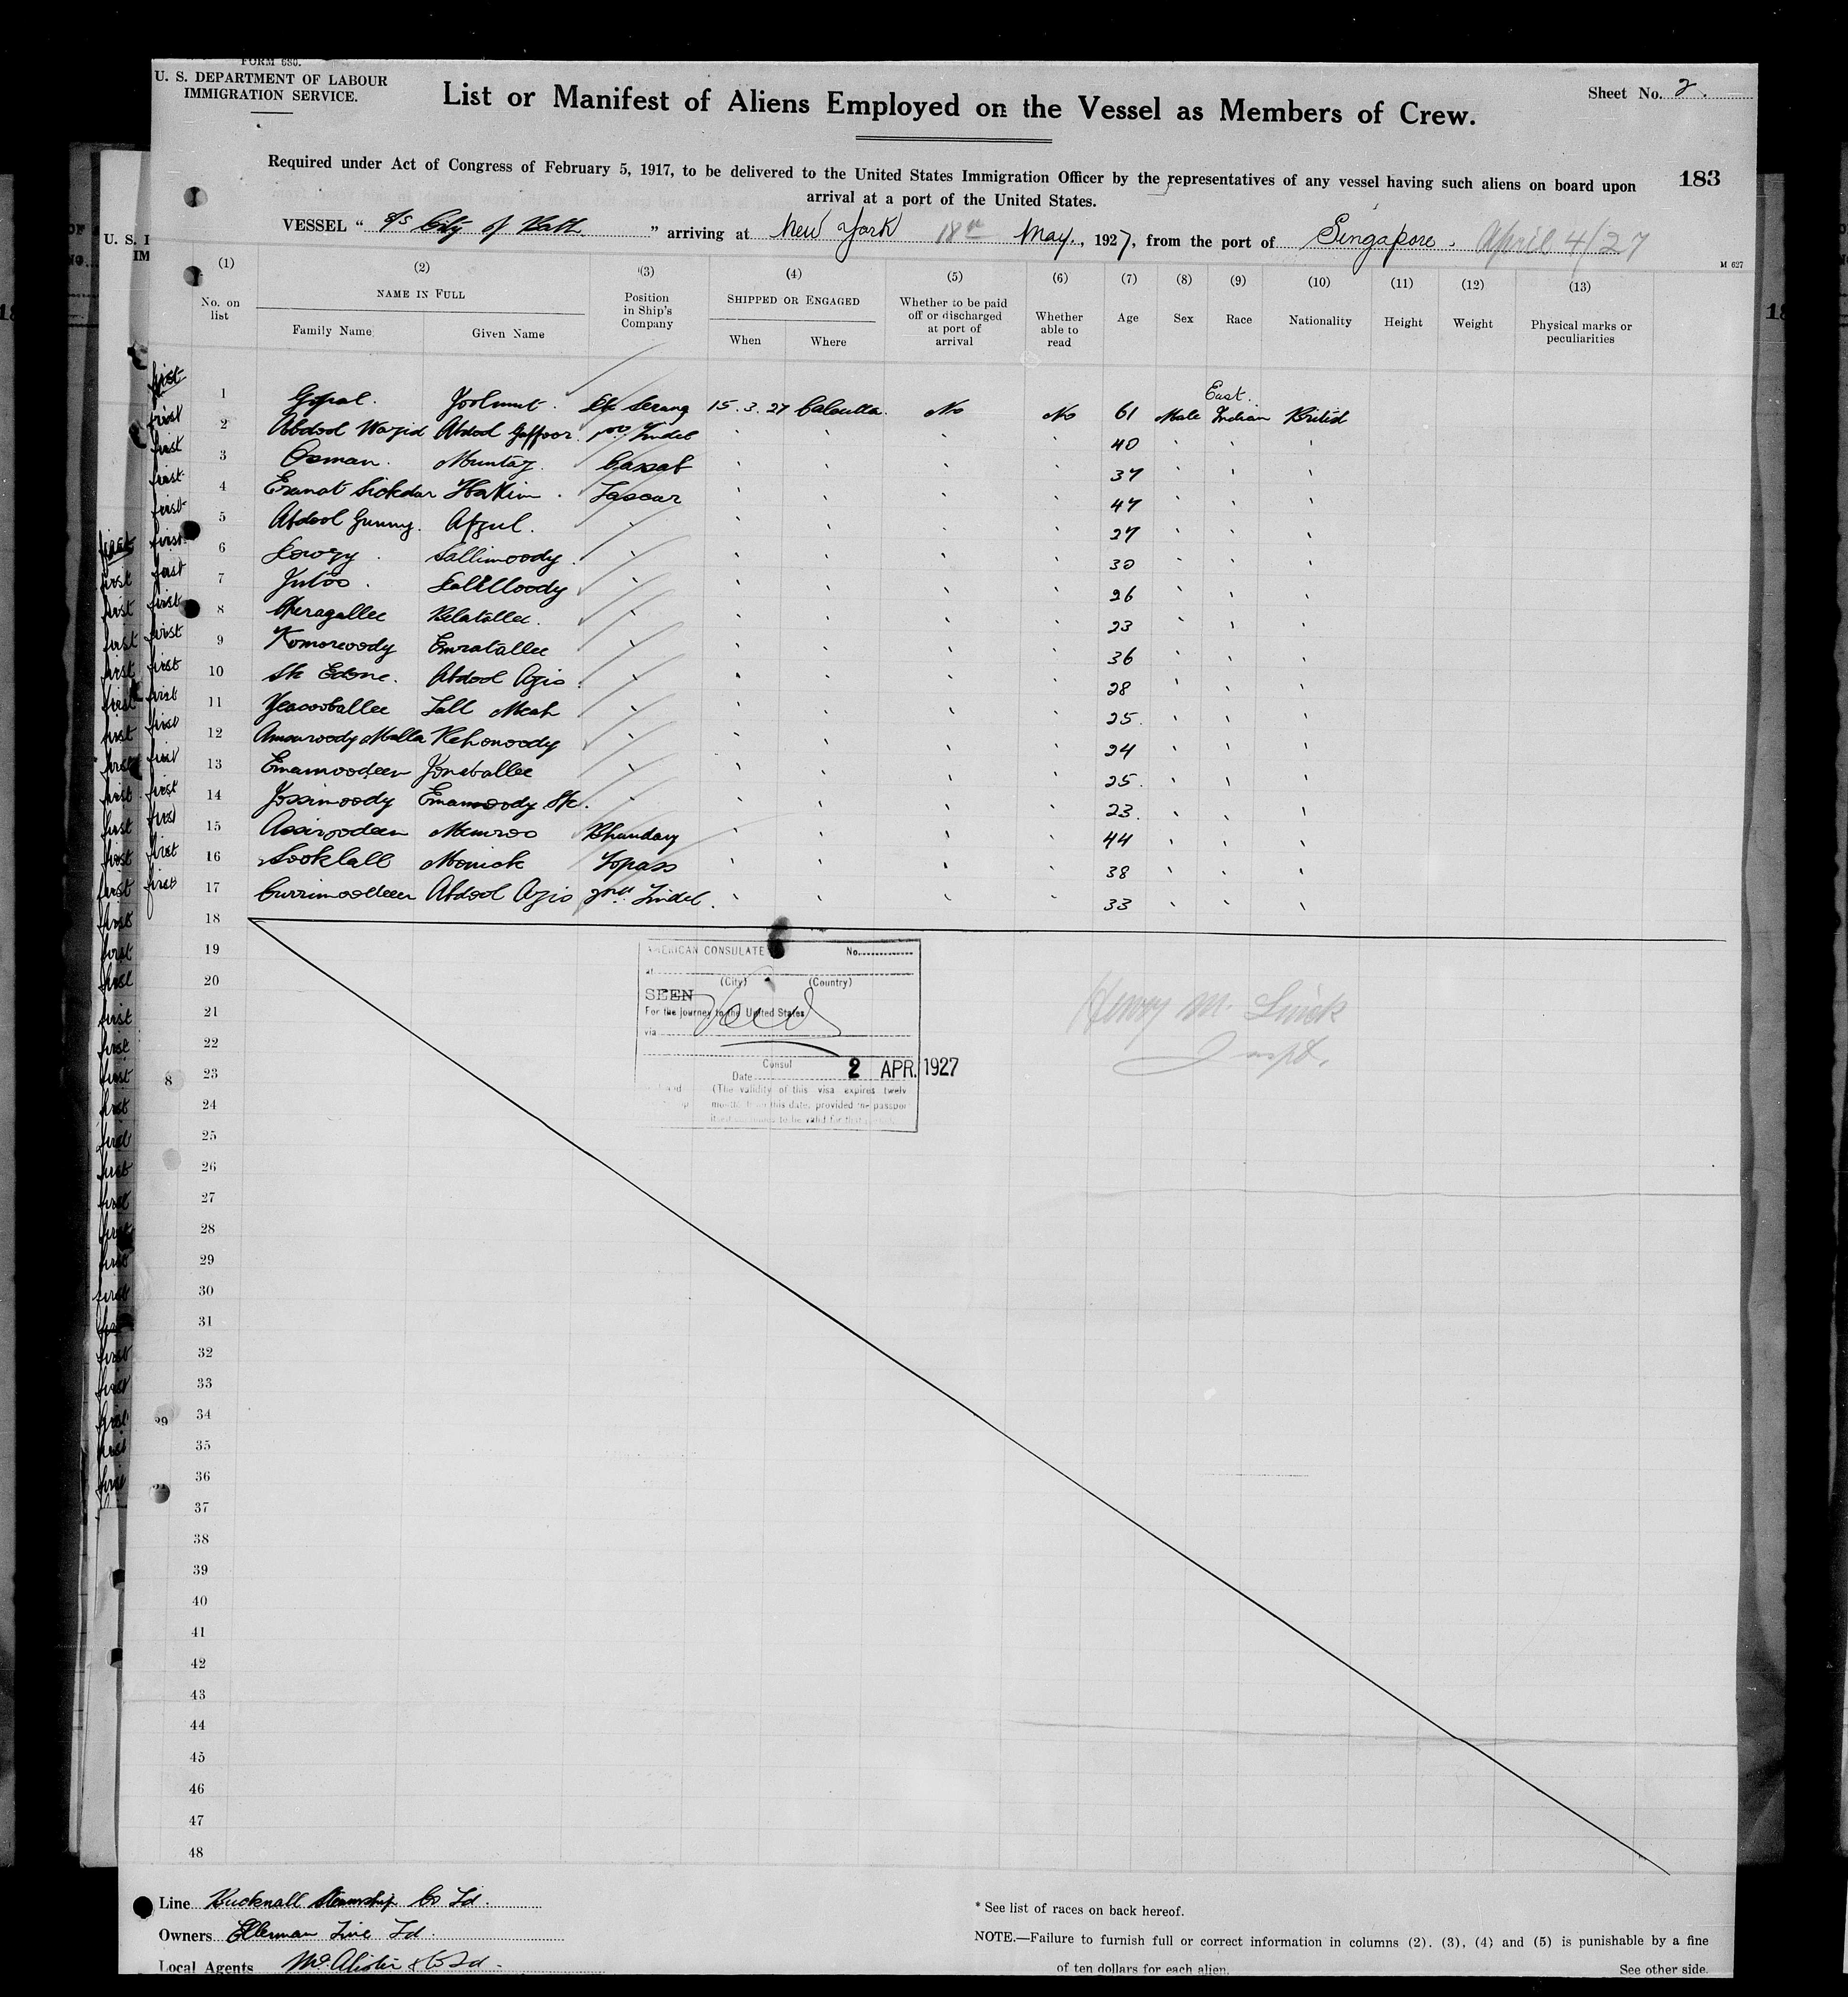 FORM 680.
U. S. DEPARTMENT OF LABOUR
IMMIGRATION SERVICE.
List or Manifest of Aliens Employed on the Vessel as Members of Crew.
Sheet No. 2.
Required under Act of Congress of February 5, 1917, to be delivered to the United States Immigration Officer by the representatives of any vessel having such aliens on board upon
arrival at a port of the United States.
183
VESSEL “ S/S City of ” arriving at New York 18th May, 1927, from the port of Singapore. April 4/27
M 627
(1) (2) (3) (4) (5) (6) (7) (8) (9) (10) (11) (12) (13)
No. on list
NAME IN FULL
Family Name Given Name
Position in Ship's Company
SHIPPED OR ENGAGED
When Where
Whether to be paid off or discharged at port of arrival
Whether able to read
Age Sex Race Nationality Height Weight
Physical marks or peculiarities
first 1 Gopal. Serang 15.3.27 Calcutta. No No 61 Male East Indian British
first 2 Abdool Wazid Abdool Goffoor. Tindel ' ' ' ' 40 ' ' '
first 3 Osman. Muntaz. Cassab ' ' ' ' 37 ' ' '
first 4 Eranat Sickdar Hakim. Lascar ' ' ' ' 47 ' ' '
first 5 Abdool Gunny. Afzul. ' ' ' ' ' 27 ' ' '
first 6 Sallimoody. ' ' ' ' ' 30 ' ' '
first 7 ' ' ' ' ' 26 ' ' '
first 8 Cheragallee Belatallee. ' ' ' ' ' 23 ' ' '
first 9 Komorwoody Emratallee ' ' ' ' ' 36 ' ' '
first 10 Sk Edone. Abdool Azis. ' ' ' ' ' 28 ' ' '
first 11 Yeacooballee Lall Meah ' ' ' ' ' 25. ' ' '
first 12 Malla ' ' ' ' ' 24 ' ' '
first 13 Emamoodeen Jonaballee ' ' ' ' ' 25. ' ' '
first 14 Jossimoody Emamoody Sk. ' ' ' ' ' 23. ' ' '
first 15 Assiroodeen Bhandary ' ' ' ' 44 ' ' '
first 16 Sooklall Monick Topass ' ' ' ' 38 ' ' '
first 17 Currimodeen Abdool Azis 2nd Tindel. ' ' ' ' 33 ' ' '
18
19
20
21
22
23
24
25
26
27
28
29
30
31
32
33
34
35
36
37
38
39
40
41
42
43
44
45
46
47
48
AMERICAN CONSULATE No.
at
(City) (Country)
SEEN
For the journey to the United States
via
Consul
Date 2 APR. 1927
(The validity of this visa expires twelv
months from this date, provided the passpor
continues to be valid for that
Henry M.
Inspt.
Line Bucknall Steamship Co Ld.
Owners Ellerman Line Ld.
Local Agents McAlister & Co Ld.
* See list of races on back hereof.
NOTE.—Failure to furnish full or correct information in columns (2), (3), (4) and (5) is punishable by a fine
of ten dollars for each alien.
See other side.